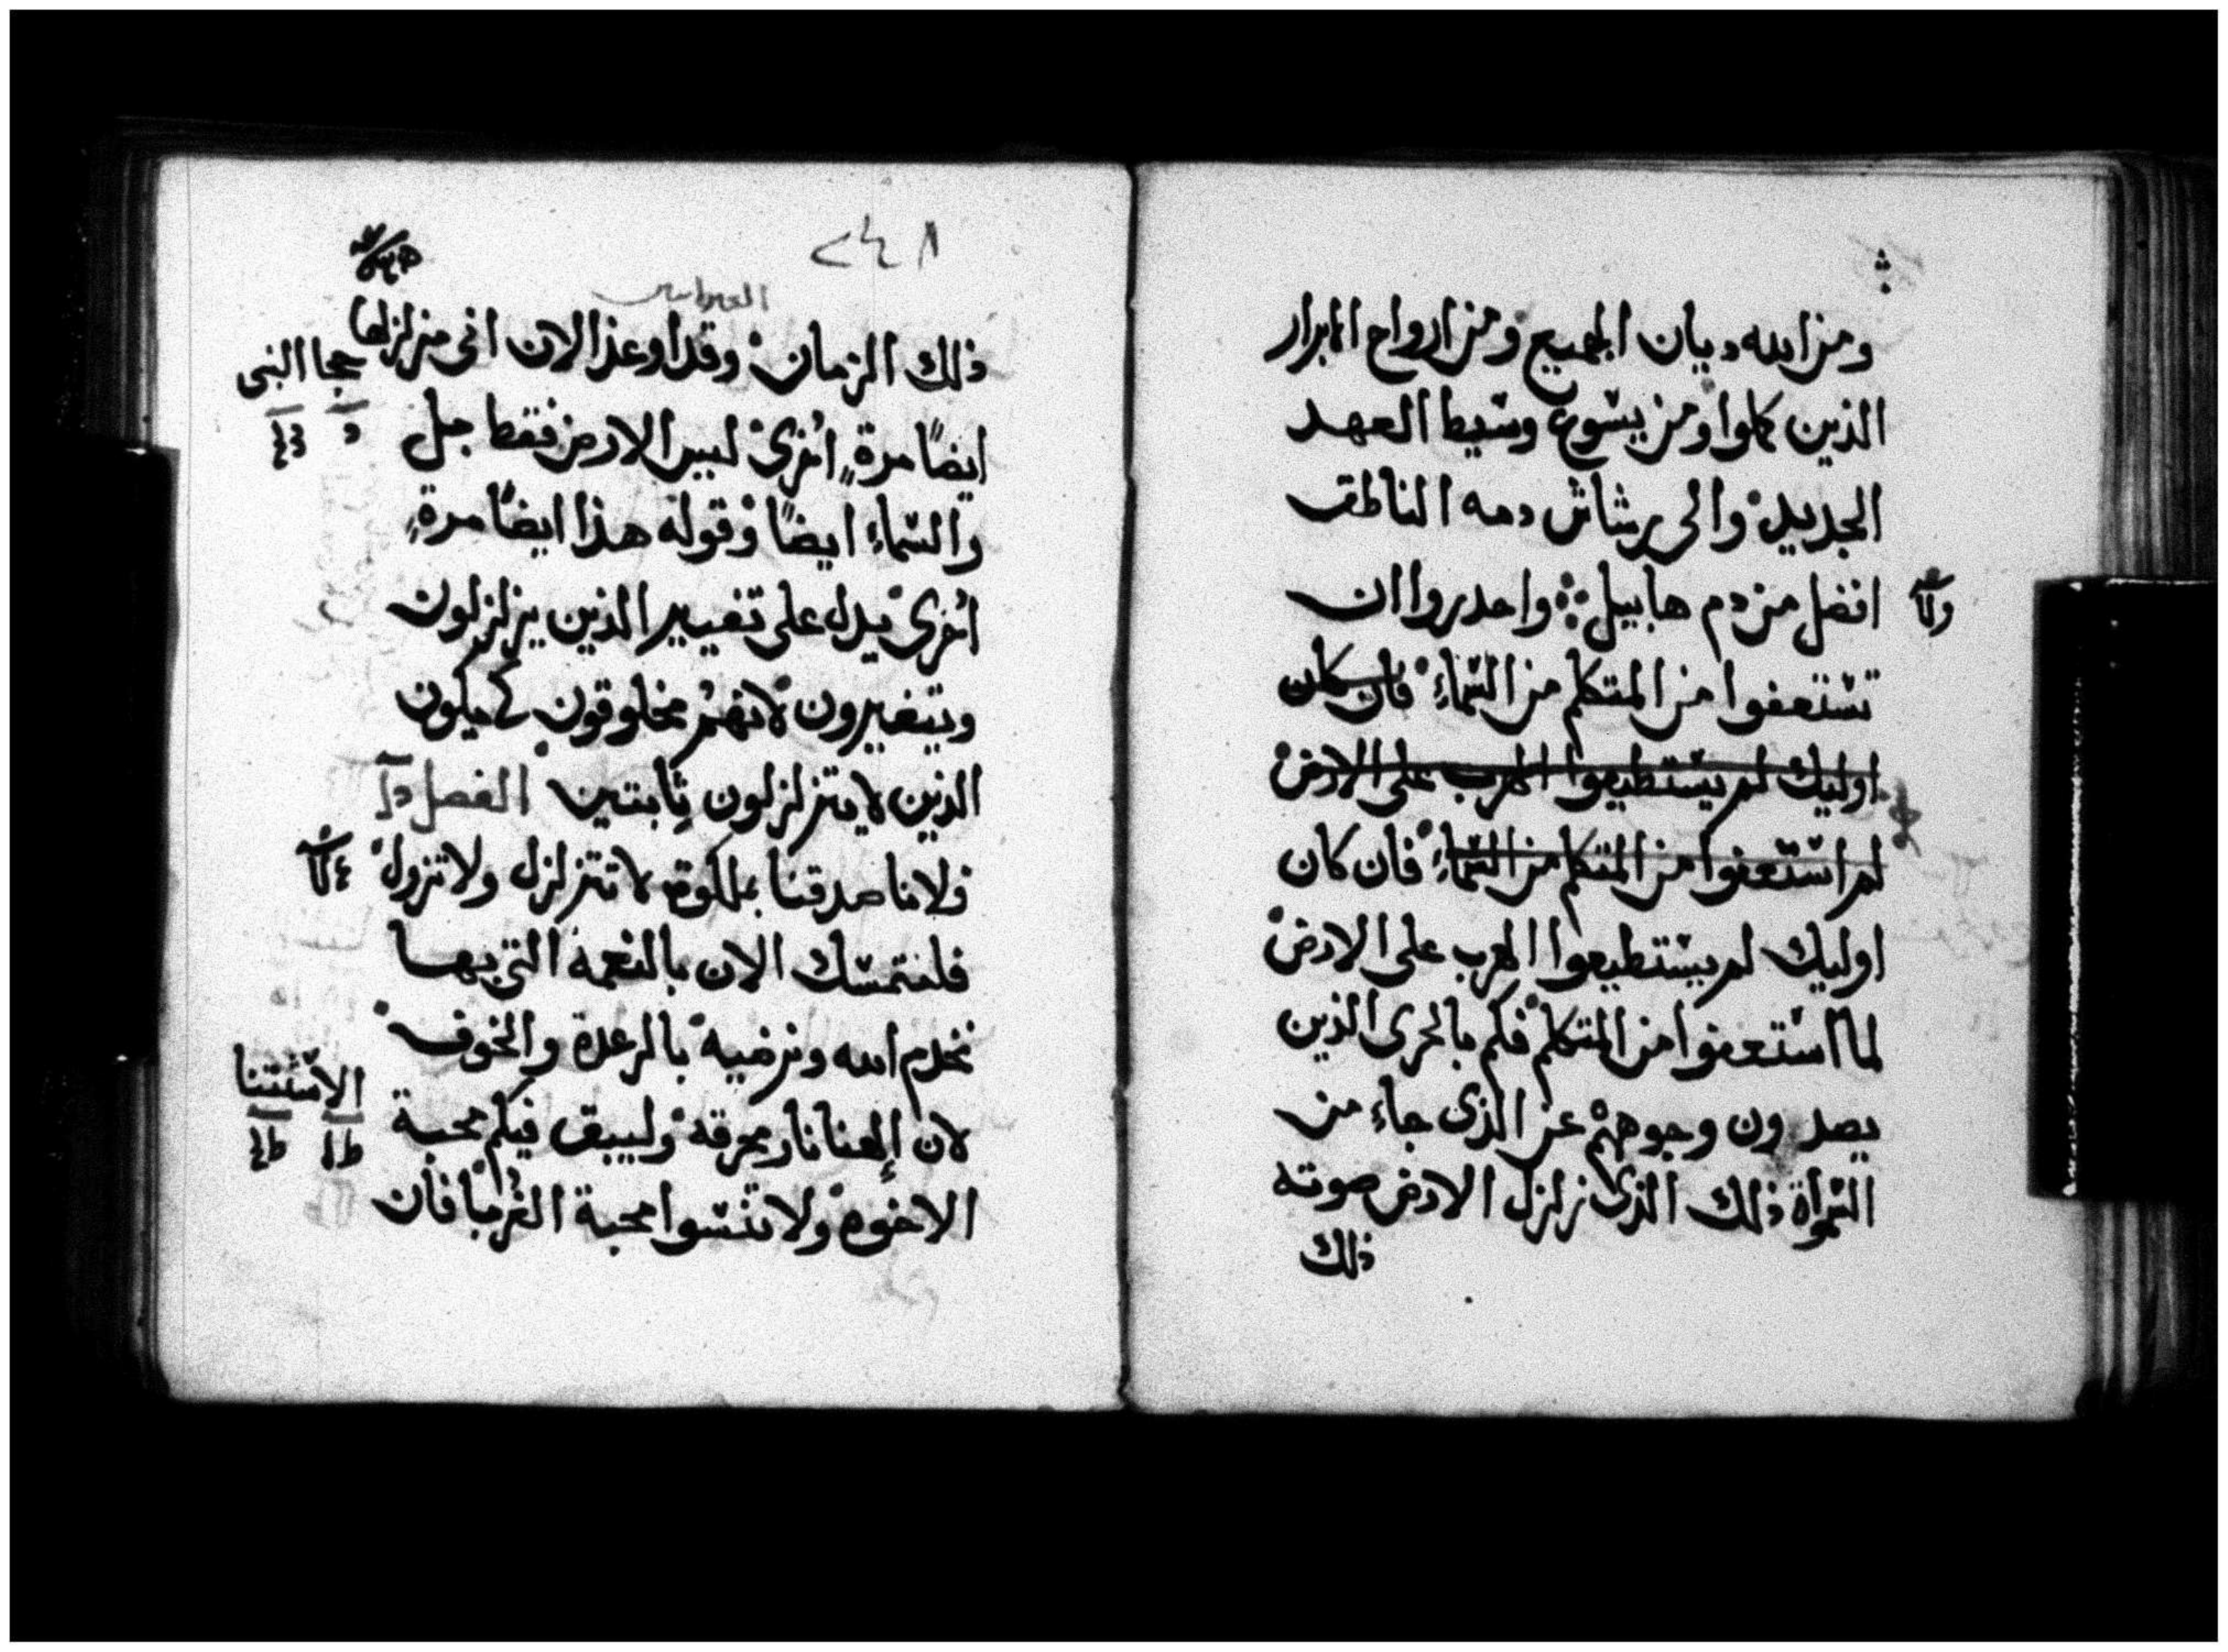 ومن الله ديان الجميع ومن ارواح الابرار
الذين كملوا ومن يسوع وسيط العهد
الجديد والى رشاش دمه الناطق
افضل من دم هابيل واحدروا ان
تستعفوا من المتكلم من السماءِ فان كان
اوليك لم يستطيعوا الهرب على الارض
لم استعفوا من المتكلم من السماءِ فان كان
اوليك لم يستطيعوا الهرب على الارض
لما استعفوا من المتكلم فكم بالحرى الذين
يصدون وجوههم عن الذى جاءِ من
السمواة ذلك الذى زلزل الارض صوته
ذلك
٢٤٨
العبرانيين
ذلك الزمان وقد اوعد الان انى مزلزلها
حجا النبى
ايضًا مرةٍ اخرى ليس الارض فقط بل
والسماءِ ايضًا وقوله هذا ايضًا مرةٍ
اخرى يدل على تغيير الذين يزلزلون
ويتغيرون لانهم مخلوقون كى يكون
الذين لا يتزلزلون ثابتين الفصل
ولانا صدقنا بملكوة لا تتزلزل ولا تزول
فلنتمسك الان بالنعمة التى بها
نخدم الله ونرضيه بالرعدة والخوف
الاستتنا
لان إلهنا نار محرقه وليبق فيكم محبة
الاخوه ولا تنسوا محبة الغربا فان